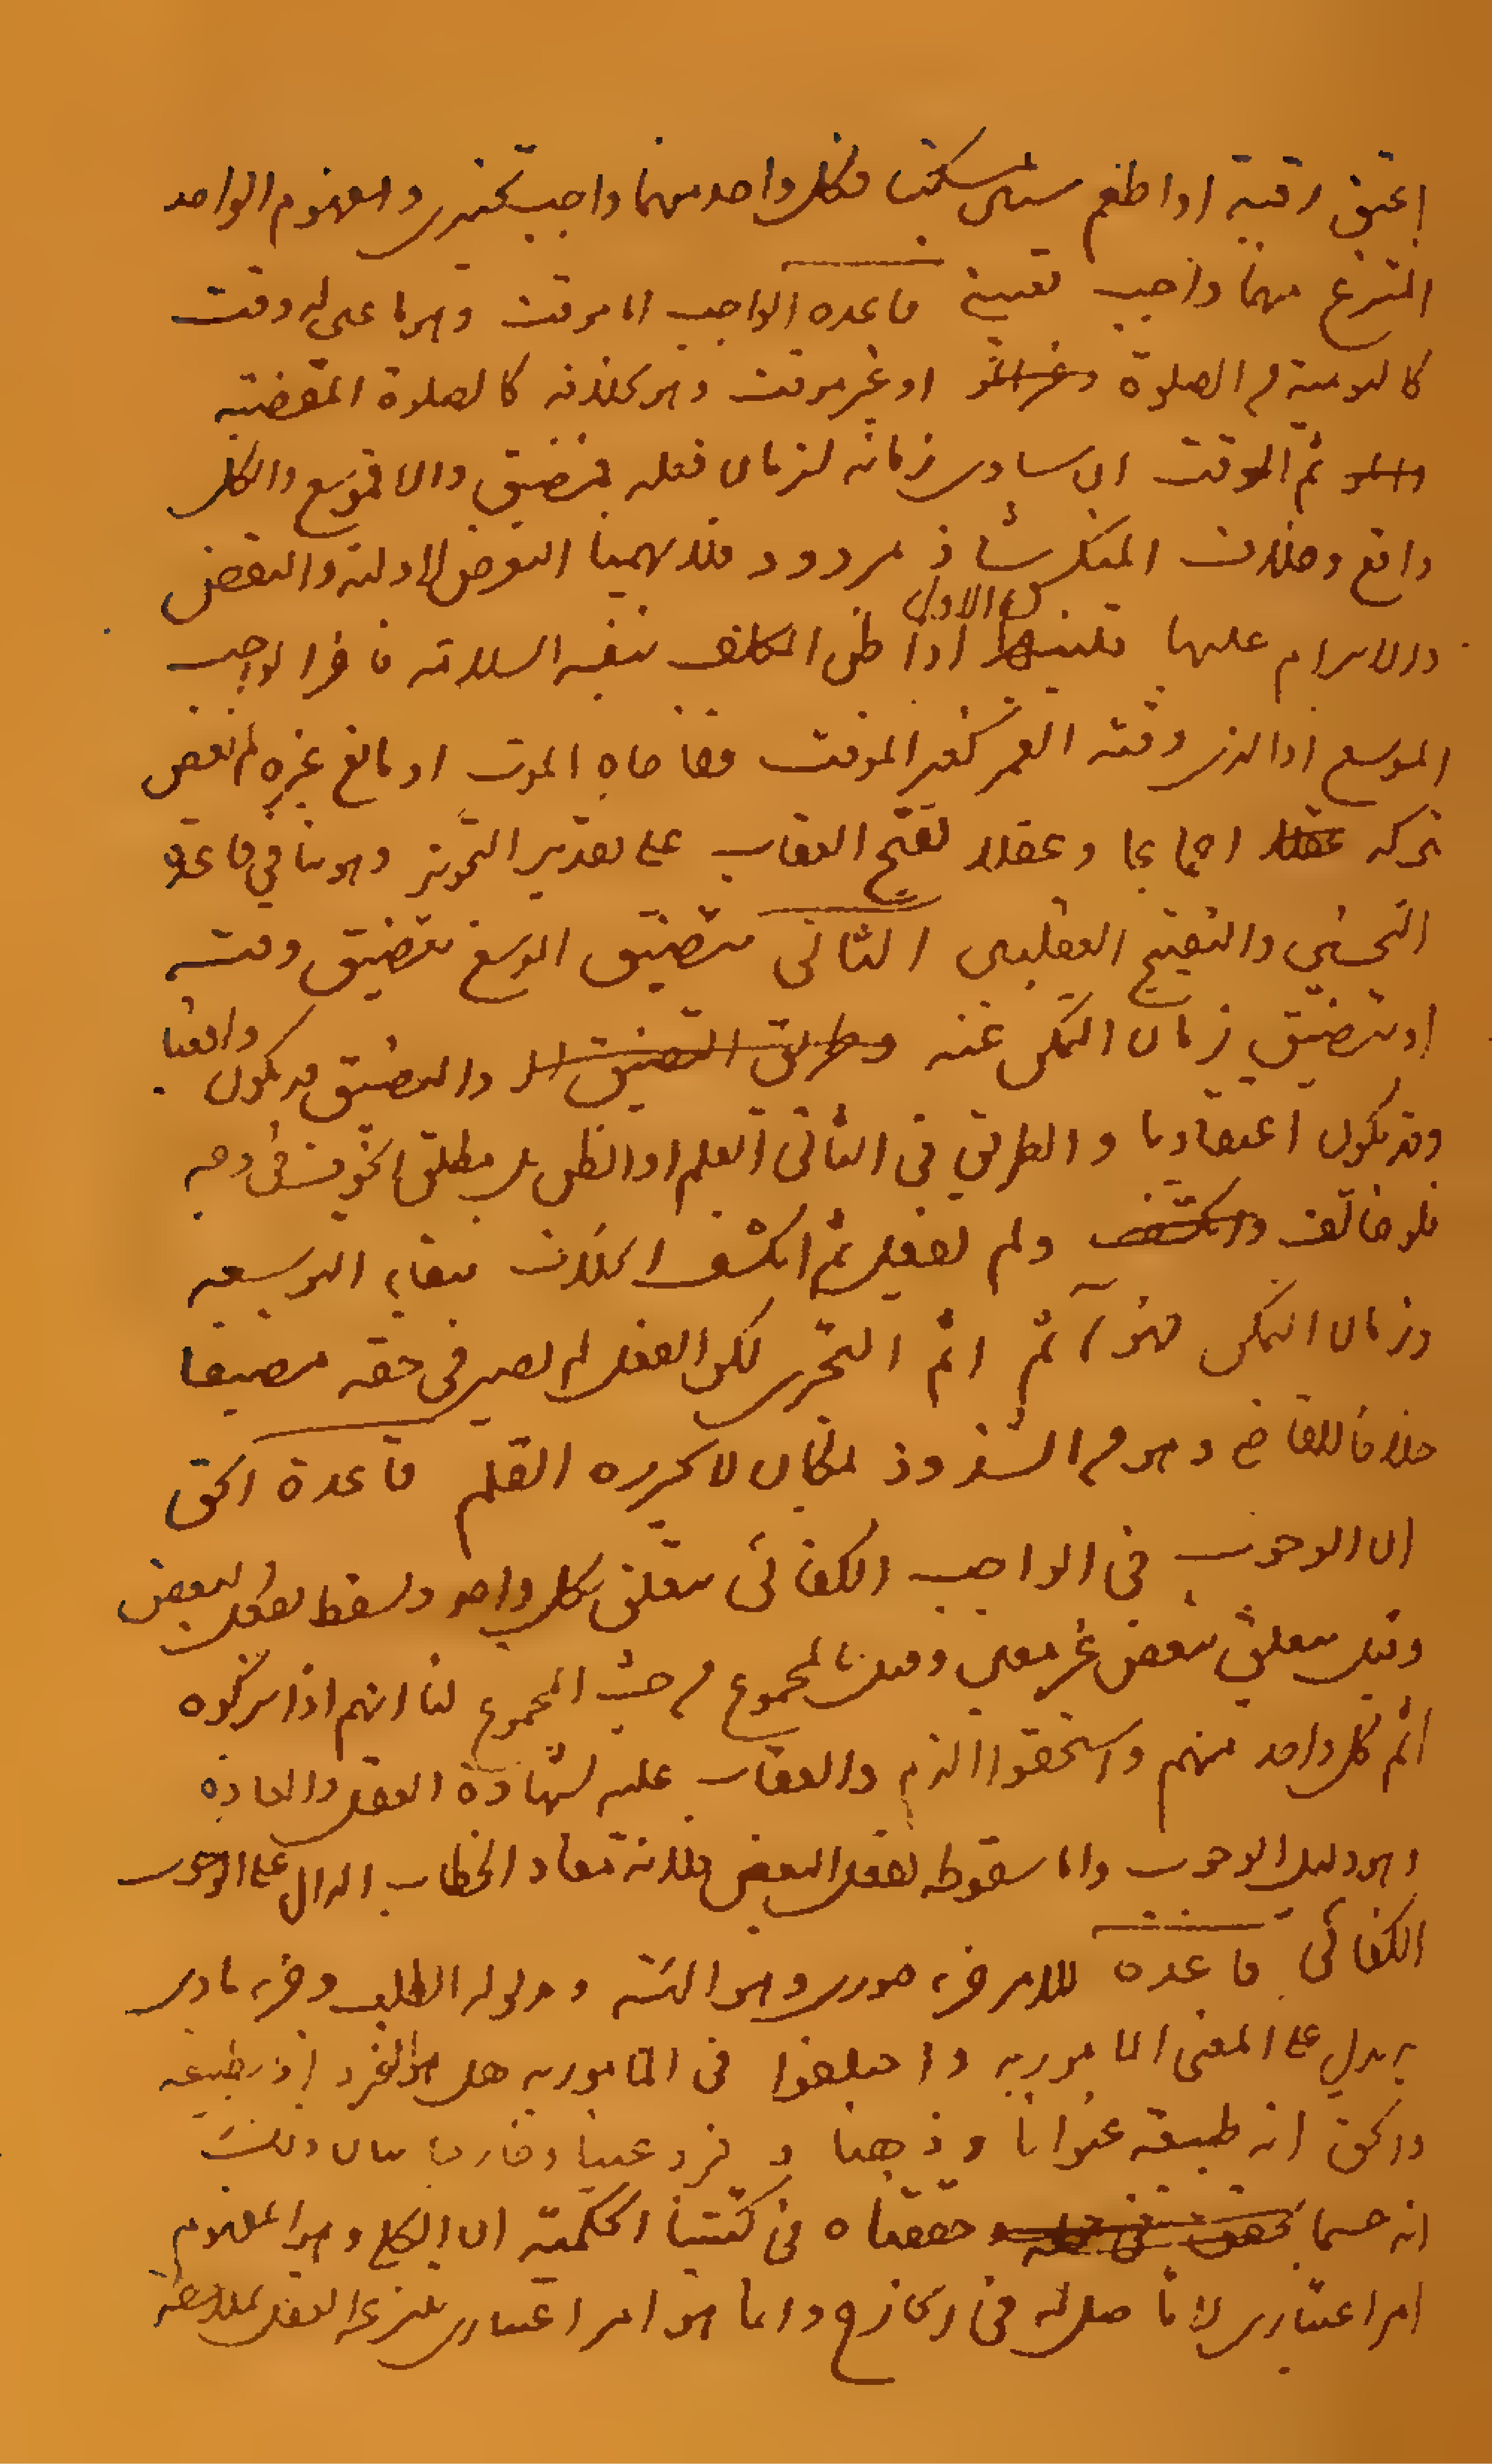 اعتق رقبة او اطعم ستين مسكينا فكل واحد منهما واجب تخييري والمفهوم الواحد
المنتزع منهما واجب تعييني قاعدة الواجب اما موقت وهو ما عين له وقت
كاليومية من الصلوة او غير موقت وهو بخلافه كالصلوة المقضية
ثم الموقت ان ساوى زمانه لزمان فعله فمضيق والا فموسع والكل
واقع وخلاف المنكر شاذ مردود فلا يهمنا التعرض لادلته والنقض
والابرام عليها تنبيه الاول اذا ظن المكلف بنفسه السلامة فاخر الواجب
الموسع او الذي وقته العمر كغير الموقت ففاجاه الموت او مانع غيره لم يعص
بتركه اجماعا وعقلا لقبح العقاب على تقدير التجويز وهو ينافي قاعدة
التحسين والتقبيح العقليين الثاني يتضيق الموسع بتضيق وقته
او بتضيق زمان التمكن عنه والتضيق قد يكون واقعيا
وقد يكون اعتقاديا والطريق في الثاني العلم او الظن بل مطلق الخوف في وجه
فلو خالف ولم يفعل ثم انكشف الخلاف ببقاء التوسعة
وزمان التمكن فهو آثم اثم التجري لكن الفعل لم يصر في حقه مضيقا
خلافا للقاضي وهو من الشذوذ بمكان لا يحرره القلم قاعدة الحق
ان الوجوب في الواجب الكفائي يتعلق بكل واحد ويسقط بفعل البعض
وقيل يتعلق ببعض غير معين وقيل بالمجموع من حيث المجموع لنا انهم اذا تركوه
اثم كل واحد منهم واستحقوا الذم والعقاب عليه لشهادة العقل والعادة
وهو دليل الوجوب واما سقوطه بفعل البعض فلانه مفاد الخطاب الدال على الوجوب
الكفائي قاعدة للامر جزء صوري وهو الهيئة ومدلوله الطلب وجزء مادي
يدل على المعنى المامور به واختلفوا في المامور به هل هو الفرد او طبيعة
والحق انه طبيعة عنوانا وذهنا و فرد عينا وخارجا بيان ذلك
انه حسبما حققناه في كتبنا الحكمية ان الكلي وهو المفهوم
امر اعتباري لا تاصل له في الخارج وانما هو امر اعتباري ينتزعه العقل بملاحظة